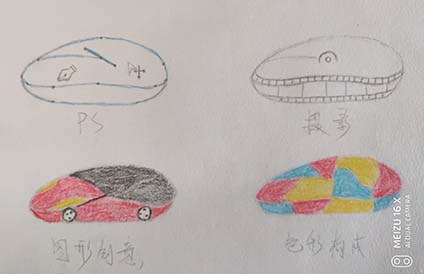 PS
摄影
图形创意,
色彩构成
MEIZU 16 X
AI DUAL CAMERA